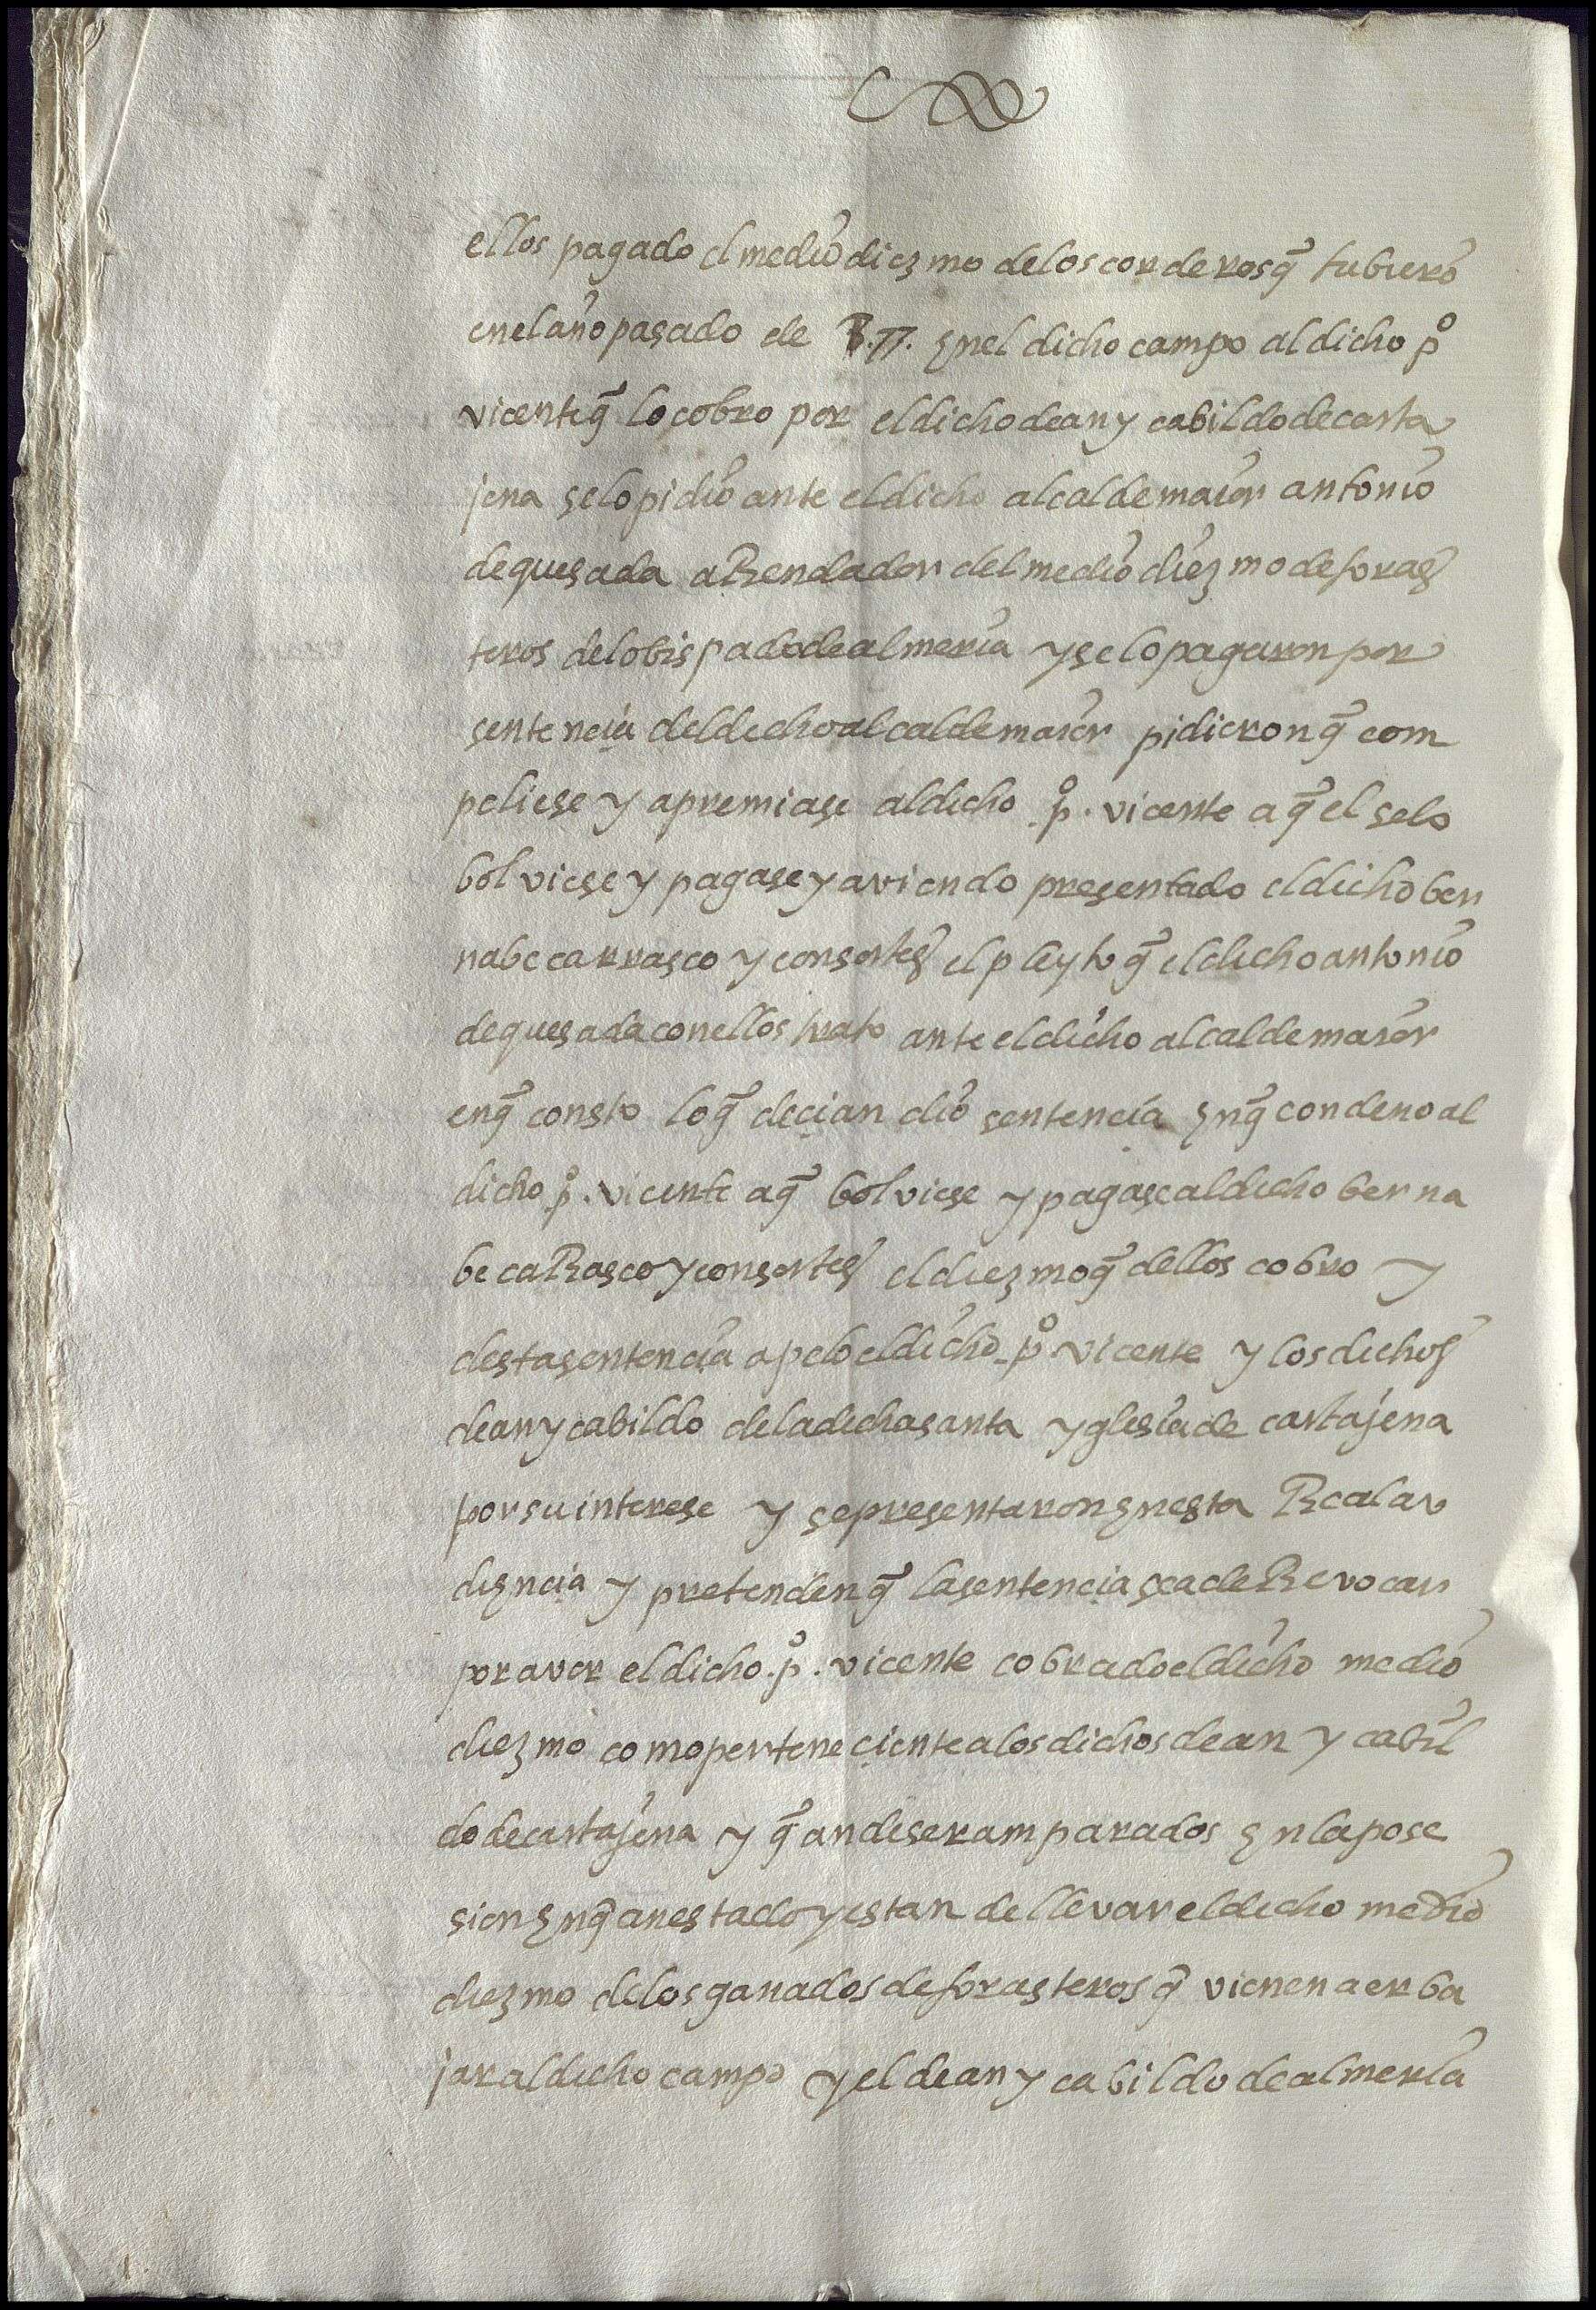 ellos pagado el medio diezmo delos corderos q̃ tubierõ
enel año pasado de 77. enel dicho campo al dicho p̊
vicente q̃ lo cobro por el dicho dean y cabildo de carta
jena se lo pidio ante el dicho alcalde maior antonio
de quesada aRendador del medio diezmo de foras
teros del obispado de almeria y se lo pagaron por
sentencia del dicho alcalde maior pidieron q̃ com
peliese y apremiase al dicho p̊. vicente a q̃ el se lo
bolviese y pagase y aviendo presentado el dicho ber
nabe carrasco y consortes el pleyto q̃ el dicho antonio
de quesada con ellos trato ante el dicho alcalde maior
en q̃ consto lo q̃ deçian dio sentencia en q̃ condeno al
dicho p̊. vicente a q̃ bolviese y pagase al dicho berna
be caRasco y consortes el diezmo q̃ dellos cobro y
desta sentencia apelo el dicho p̊. vicente y los dichos
dean y cabildo de la dicha santa yglesia de cartajena
por su interese y se presentaron en esta Real au
diençia y pretenden q̃ la sentençia sea de Revocar
por aver el dicho .p̊. vicente cobrado el dicho medio
diezmo como perteneçiente a los dichos dean y cabil
do de cartajena y q̃ an de ser amparados en la pose
sion en q̃ an estado y estan de llevar el dicho medio
diezmo de los ganados de forasteros q̃ vienen a erba
jar al dicho campo y el dean y cabildo de almeria